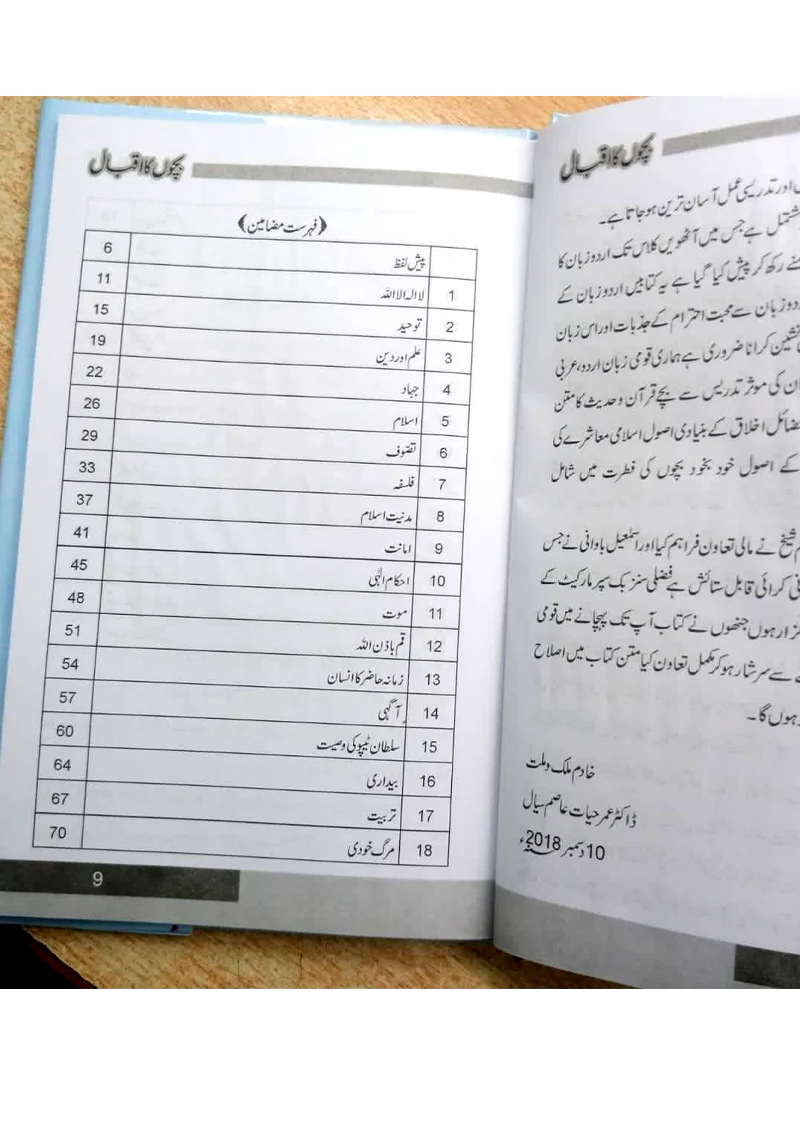 بچوں کا اقبال
ں اور تدریسی عمل آسان ترین ہو جاتا ہے۔
مشتمل ہے جس میں آٹھویں کلاس تک اردو زبان کا
منے رکھ کر پیش کیا گیا ہے یہ کتابیں اردو زبان کے
دو زبان سے محبت احترام کے جذبات اور اس زبان
نشین کرانا ضروری ہے ہماری قومی زبان اردو، عربی
ان کی موثر تدریس سے بچے قرآن و حدیث کا متن
ضائل اخلاق کے بنیادی اصول اسلامی معاشرے کی
کے اصول خود بخود بچوں کی فطرت میں شامل
م شیخ نے مالی تعاون فراہم کیا اور اسمٰعیل باوانی نے جس
نی کرائی قابل ستائش ہے فضلی سنز بک سپر مارکیٹ کے
گزار ہوں جنھوں نے کتاب آپ تک پہچانے میں قومی
ے سے سرشار ہو کر مکمل تعاون کیا متن کتاب میں اصلاح
رہوں گا۔
خادم ملک و ملت
ڈاکٹر عمر حیات عاصم سیال
10 دسمبر 2018ء
بچوں کا اقبال
﴿فہرست مضامین﴾
پیش لفظ 6
1 لا الہ الا اللہ 11
2 توحید 15
3 علم اور دین 19
4 جہاد 22
5 اسلام 26
6 تصّوف 29
7 فلسفہ 33
8 مدنیت اسلام 37
9 امانت 41
10 احکام الٰہی 45
11 موت 48
12 قم باذن اللہ 51
13 زمانہ حاضر کا انسان 54
14 آگہی 57
15 سلطان ٹیپو کی وصیت 60
16 بیداری 64
17 تربیت 67
18 مرگ خودی 70
9